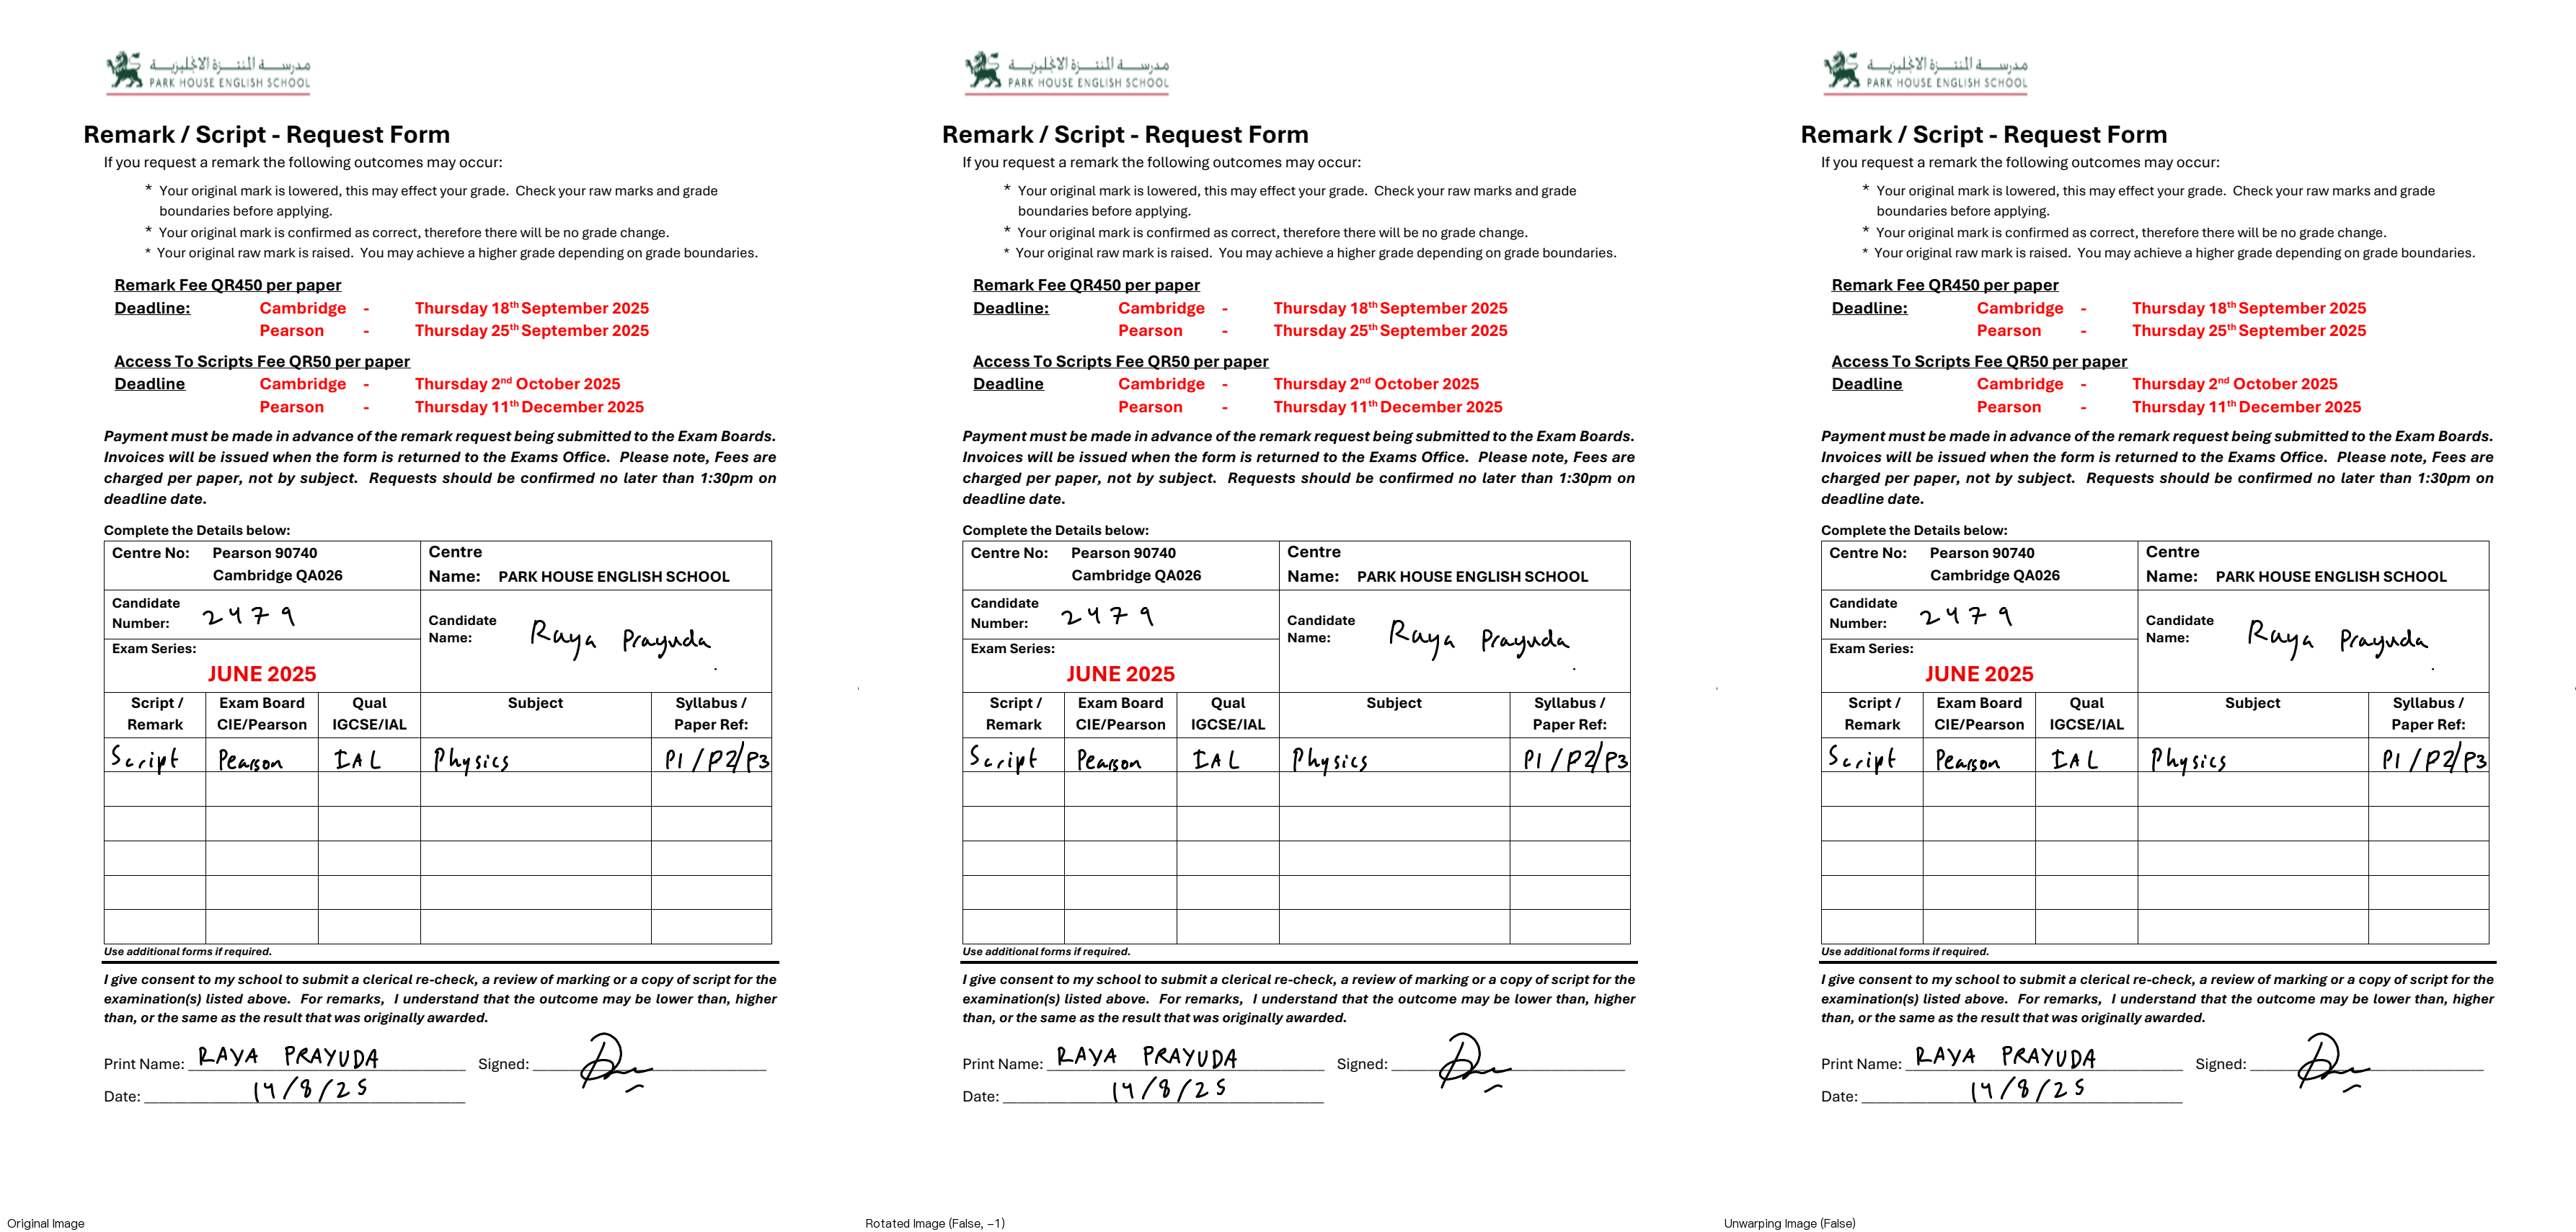 مدرسة المنتزة الانجليزية
PARK HOUSE ENGLISH SCHOOL
Remark / Script - Request Form
If you request a remark the following outcomes may occur:
* Your original mark is lowered, this may effect your grade. Check your raw marks and grade
boundaries before applying.
* Your original mark is confirmed as correct, therefore there will be no grade change.
* Your original raw mark is raised. You may achieve a higher grade depending on grade boundaries.
Remark Fee QR450 per paper
Deadline: Cambridge - Thursday 18th September 2025
Pearson - Thursday 25th September 2025
Access To Scripts Fee QR50 per paper
Deadline Cambridge - Thursday 2nd October 2025
Pearson - Thursday 11th December 2025
Payment must be made in advance of the remark request being submitted to the Exam Boards.
Invoices will be issued when the form is returned to the Exams Office. Please note, Fees are
charged per paper, not by subject. Requests should be confirmed no later than 1:30pm on
deadline date.
Complete the Details below:
Centre No: Pearson 90740
Cambridge QA026
Centre
Name: PARK HOUSE ENGLISH SCHOOL
Candidate
Number: 2479
Candidate
Name: Raya Prayuda
Exam Series:
JUNE 2025
Script /
Remark
Exam Board
CIE/Pearson
Qual
IGCSE/IAL
Subject
Syllabus /
Paper Ref:
Script Pearson IAL Physics P1/P2/P3
Use additional forms if required.
I give consent to my school to submit a clerical re-check, a review of marking or a copy of script for the
examination(s) listed above. For remarks, I understand that the outcome may be lower than, higher
than, or the same as the result that was originally awarded.
Print Name: RAYA PRAYUDA Signed:
Date: 14/8/25
Original Image
مدرسة المنتزة الانجليزية
PARK HOUSE ENGLISH SCHOOL
Remark / Script - Request Form
If you request a remark the following outcomes may occur:
* Your original mark is lowered, this may effect your grade. Check your raw marks and grade
boundaries before applying.
* Your original mark is confirmed as correct, therefore there will be no grade change.
* Your original raw mark is raised. You may achieve a higher grade depending on grade boundaries.
Remark Fee QR450 per paper
Deadline: Cambridge - Thursday 18th September 2025
Pearson - Thursday 25th September 2025
Access To Scripts Fee QR50 per paper
Deadline Cambridge - Thursday 2nd October 2025
Pearson - Thursday 11th December 2025
Payment must be made in advance of the remark request being submitted to the Exam Boards.
Invoices will be issued when the form is returned to the Exams Office. Please note, Fees are
charged per paper, not by subject. Requests should be confirmed no later than 1:30pm on
deadline date.
Complete the Details below:
Centre No: Pearson 90740
Cambridge QA026
Centre
Name: PARK HOUSE ENGLISH SCHOOL
Candidate
Number: 2479
Candidate
Name: Raya Prayuda
Exam Series:
JUNE 2025
Script /
Remark
Exam Board
CIE/Pearson
Qual
IGCSE/IAL
Subject
Syllabus /
Paper Ref:
Script Pearson IAL Physics P1/P2/P3
Use additional forms if required.
I give consent to my school to submit a clerical re-check, a review of marking or a copy of script for the
examination(s) listed above. For remarks, I understand that the outcome may be lower than, higher
than, or the same as the result that was originally awarded.
Print Name: RAYA PRAYUDA Signed:
Date: 14/8/25
Rotated Image (False, -1)
مدرسة المنتزة الانجليزية
PARK HOUSE ENGLISH SCHOOL
Remark / Script - Request Form
If you request a remark the following outcomes may occur:
* Your original mark is lowered, this may effect your grade. Check your raw marks and grade
boundaries before applying.
* Your original mark is confirmed as correct, therefore there will be no grade change.
* Your original raw mark is raised. You may achieve a higher grade depending on grade boundaries.
Remark Fee QR450 per paper
Deadline: Cambridge - Thursday 18th September 2025
Pearson - Thursday 25th September 2025
Access To Scripts Fee QR50 per paper
Deadline Cambridge - Thursday 2nd October 2025
Pearson - Thursday 11th December 2025
Payment must be made in advance of the remark request being submitted to the Exam Boards.
Invoices will be issued when the form is returned to the Exams Office. Please note, Fees are
charged per paper, not by subject. Requests should be confirmed no later than 1:30pm on
deadline date.
Complete the Details below:
Centre No: Pearson 90740
Cambridge QA026
Centre
Name: PARK HOUSE ENGLISH SCHOOL
Candidate
Number: 2479
Candidate
Name: Raya Prayuda
Exam Series:
JUNE 2025
Script /
Remark
Exam Board
CIE/Pearson
Qual
IGCSE/IAL
Subject
Syllabus /
Paper Ref:
Script Pearson IAL Physics P1/P2/P3
Use additional forms if required.
I give consent to my school to submit a clerical re-check, a review of marking or a copy of script for the
examination(s) listed above. For remarks, I understand that the outcome may be lower than, higher
than, or the same as the result that was originally awarded.
Print Name: RAYA PRAYUDA Signed:
Date: 14/8/25
Unwarping Image (False)